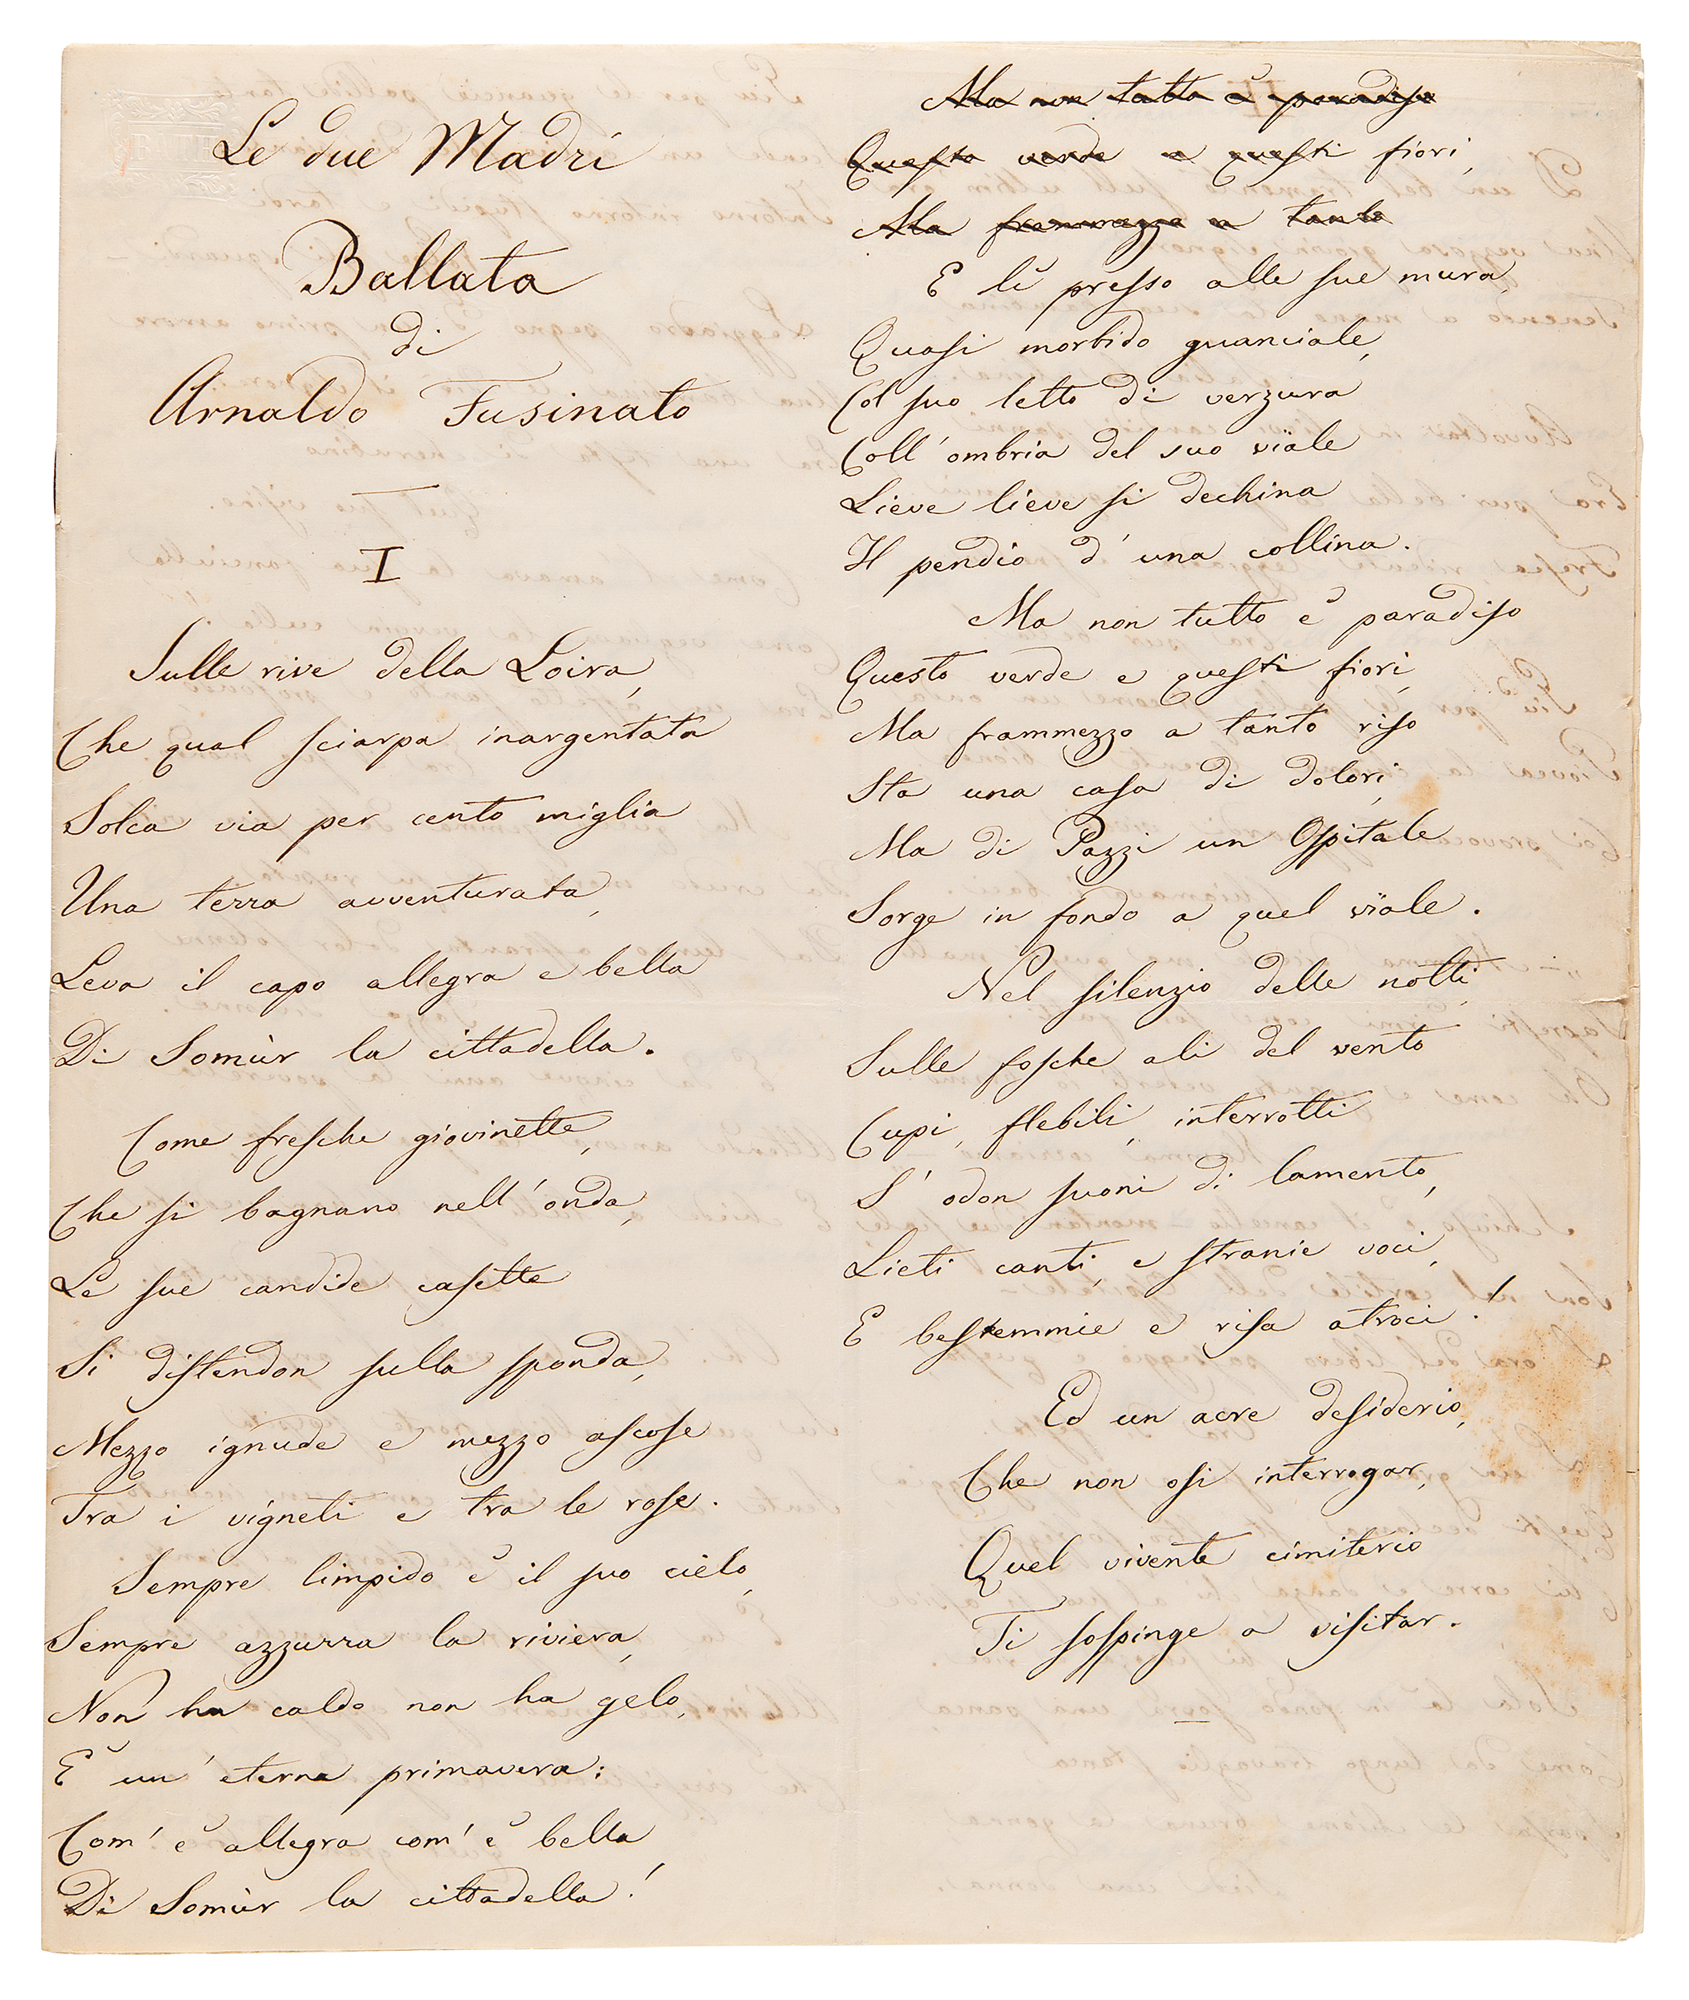 Le due Madri
Ballata
di
Arnaldo Fusinato
I
Sulle rive della Loira,
Che qual sciarpa inargentata
Solca via per cento miglia
Una terra avventurata,
Leva il capo allegra e bella
Di Somùr la cittadella.
Come fresche giovinette,
Che si bagnano nell'onda,
Le sue candide casette
Si distendon sulla sponda,
Mezzo ignude e mezzo ascose
Tra i vigneti e tra le rose.
Sempre limpido è il suo cielo,
Sempre azzurra la riviera,
Non ha caldo non ha gelo,
È un' eterna primavera:
Com' è allegra com' è bella,
Di Somùr la cittadella!
Ma non tutto è paradiso
Questo verde e questi fiori,
Ma frammezzo a tanto
E lì presso alle sue mura,
Quasi morbido guanciale,
Col suo letto di verzura
Coll' ombria del suo vïale
Lieve lieve si dechina
Il pendio d' una collina.
Ma non tutto è paradiso
Questo verde e questi fiori,
Ma frammezzo a tanto riso
Sta una casa di dolori,
Ma di Pazzi un Ospitale
Sorge in fondo a quel vïale.
Nel silenzio delle notti,
Sulle fosche ali del vento
Cupi, flebili, interrotti
S' odon suoni di lamento,
Lieti canti, e stranie voci,
E bestemmie e risa atroci!
Ed un acre desiderio,
Che non osi interrogar,
Quel vivente cimiterio
Ti sospinge a visitar.